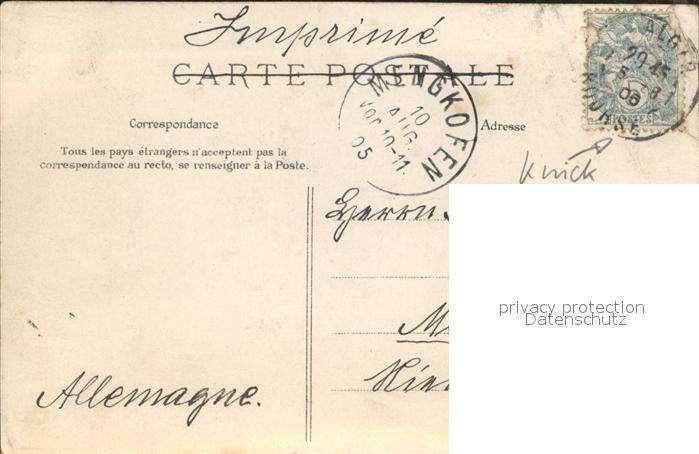 Imprimé
CARTE POSTALE
ALGER
BOURSE
POSTES
MENGKOFEN
10
AUG.
VOR.10-11.
05
Correspondance
Adresse
Tous les pays étrangers n'acceptent pas la
correspondance au recto, se renseigner à la Poste.
Knick
Herrn
privacy protection
Datenschutz
Allemagne.